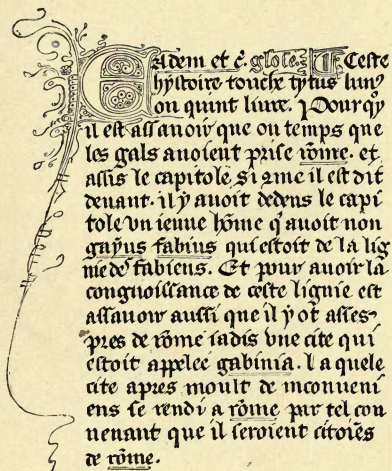 Eadem et c̄. glose. ¶ Ceste
hystoire touche tytus liui9
ou quint liure. Pourqͥ
il est assauoir que ou temps que
les gals auoient prise rōme. et
assis le capitole, si 9me il est dit
deuant. il y auoit dedens le capi
tole vn ieune hōme q̄ auoit non
gayus fabius qui estoit de la lig
nie des fabiens. Et pour auoir la
congnoissance de ceste lignie est
assauoir aussi que il y ot asses
pres de rōme iadis vne cite qui
estoit appelee gabinia. la quele
cite apres moult de inconueni
ens se rendi a rōme par tel con
uenant que il seroient citoiēs
de rōme.